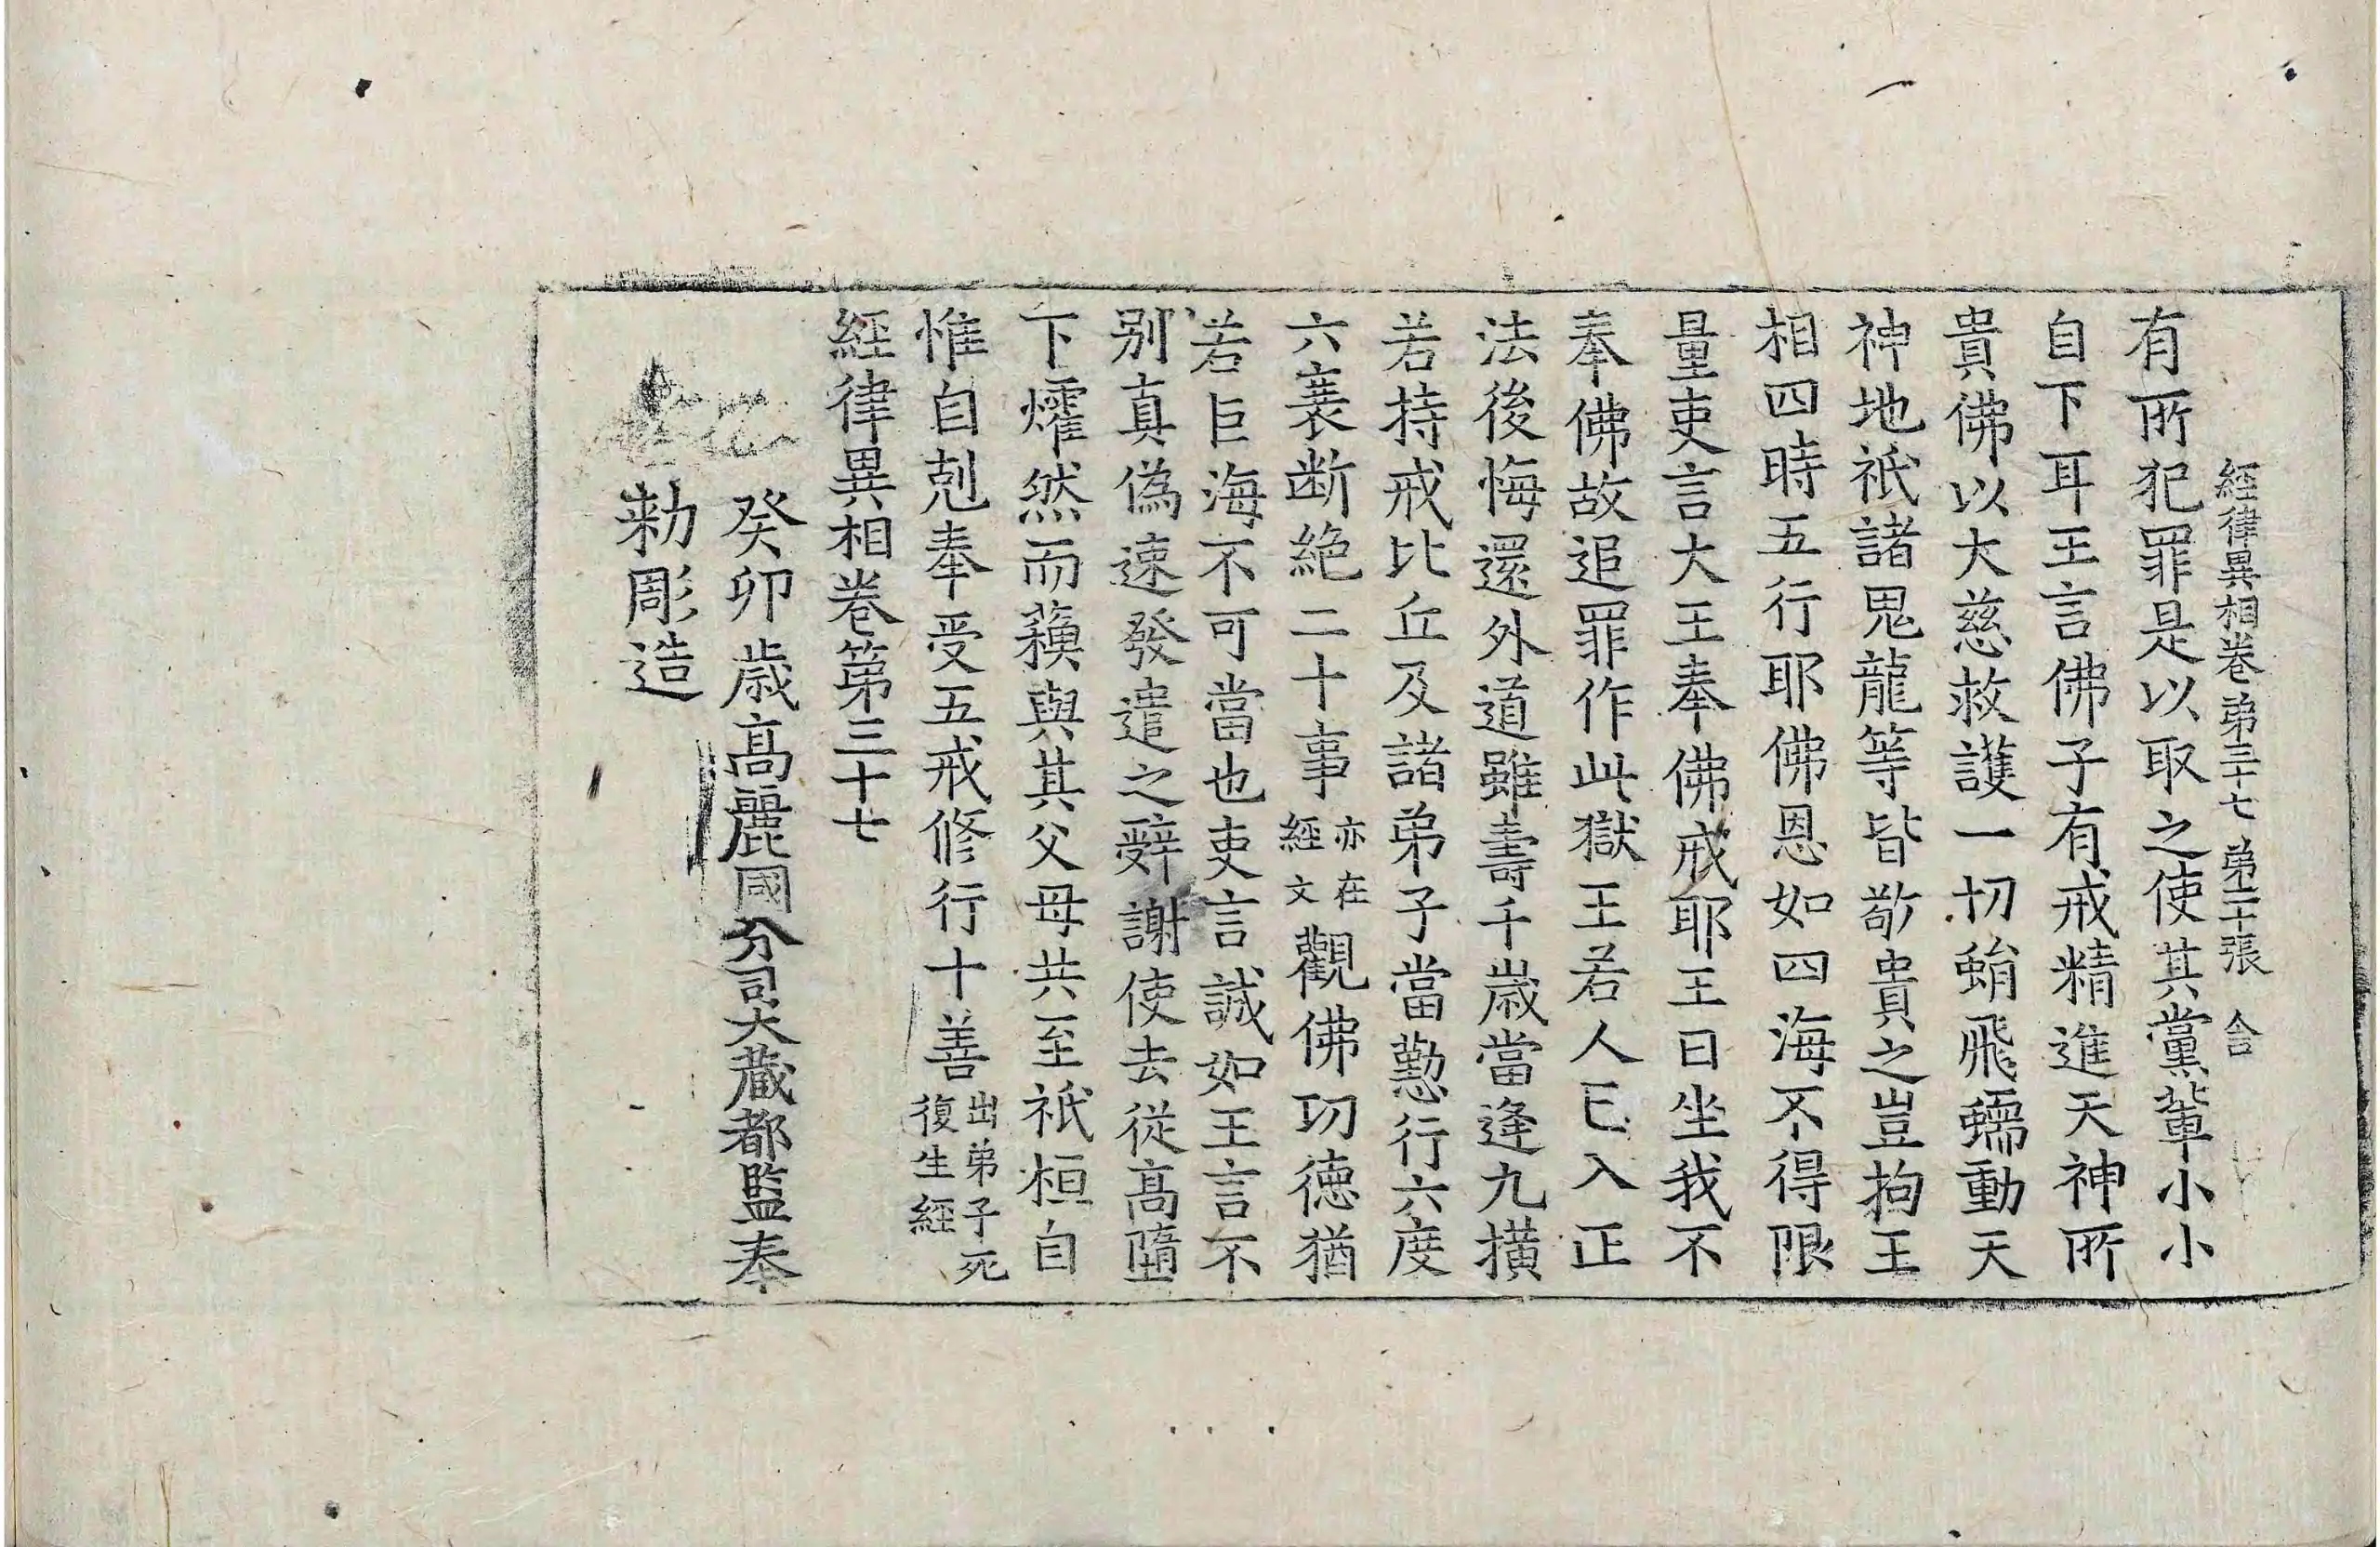 經律異相卷第三十七 第二十張 合
有所犯罪是以取之使其黨輩小小
自下耳王言佛子有戒精進天神所
貴佛以大慈救護一切蜎飛蠕動天
神地祇諸鬼龍等皆敬貴之豈拘王
相四時五行耶佛恩如四海不得限
量吏言大王奉佛戒耶王曰坐我不
奉佛故追罪作此獄王若人已入正
法後悔還外道雖壽千歲當逢九橫
若持戒比丘及諸弟子當懃行六度
六衰断絶二十事亦在經文觀佛功德猶
若巨海不可當也吏言誠如王言不
别真偽速發遣之辭謝使去從高墮
下㸌然而蘓與其父母共至祇桓自
惟自剋奉受五戒修行十善出弟子死復生經
經律異相卷第三十七
癸卯歲高麗國分司大藏都監奉
勑彫造